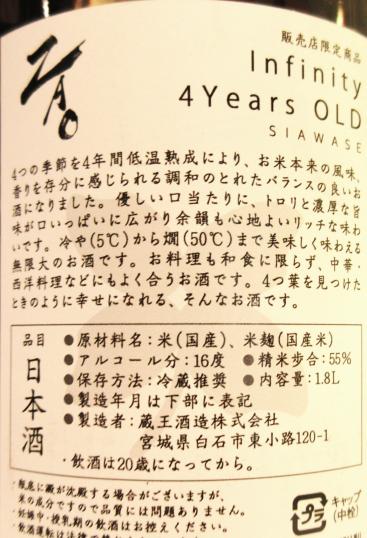 ZAO
販売店限定商品
Infinity
4Years OLD
SIAWASE
4つの季節を4年間低温熟成により、お米本来の風味、
香りを存分に感じられる調和のとれたバランスの良いお
酒になりました。優しい口当たりに、トロリと濃厚な旨
味が口いっぱいに広がり余韻も心地よいリッチな味わ
いです。冷や(5℃)から燗(50℃)まで美味しく味わえる
無限大のお酒です。お料理も和食に限らず、中華・
西洋料理などにもよく合うお酒です。4つ葉を見つけた
ときのように幸せになれる、そんなお酒です。
品目
日本酒
●原材料名:米(国産)、米麹(国産米)
●アルコール分:16度 ●精米歩合:55%
●保存方法:冷蔵推奨 ●内容量:1.8L
●製造年月は下部に表記
●製造者:蔵王酒造株式会社
宮城県白石市東小路120-1
・飲酒は20歳になってから。
・瓶底に澱が沈殿する場合がございますが、
米の成分ですので品質には問題ありません。
・妊娠中・授乳期の飲酒はお控えください。
・飲酒運転は法律で
プラ
キャップ
(中栓)